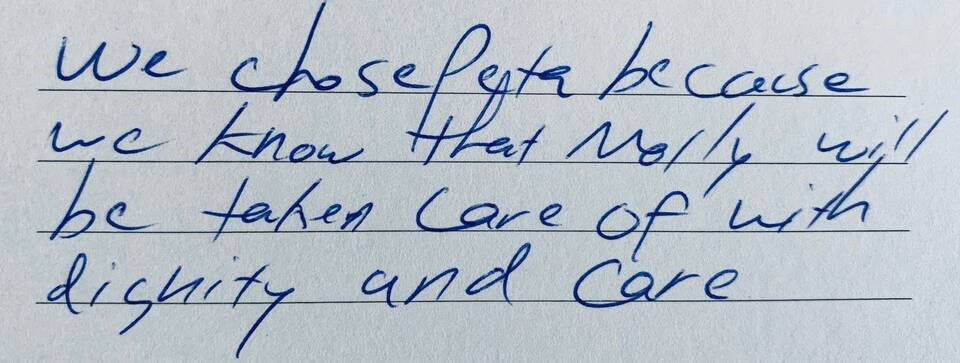 We chose Peyta because
we know that Molly will
be taken care of with
dignity and care